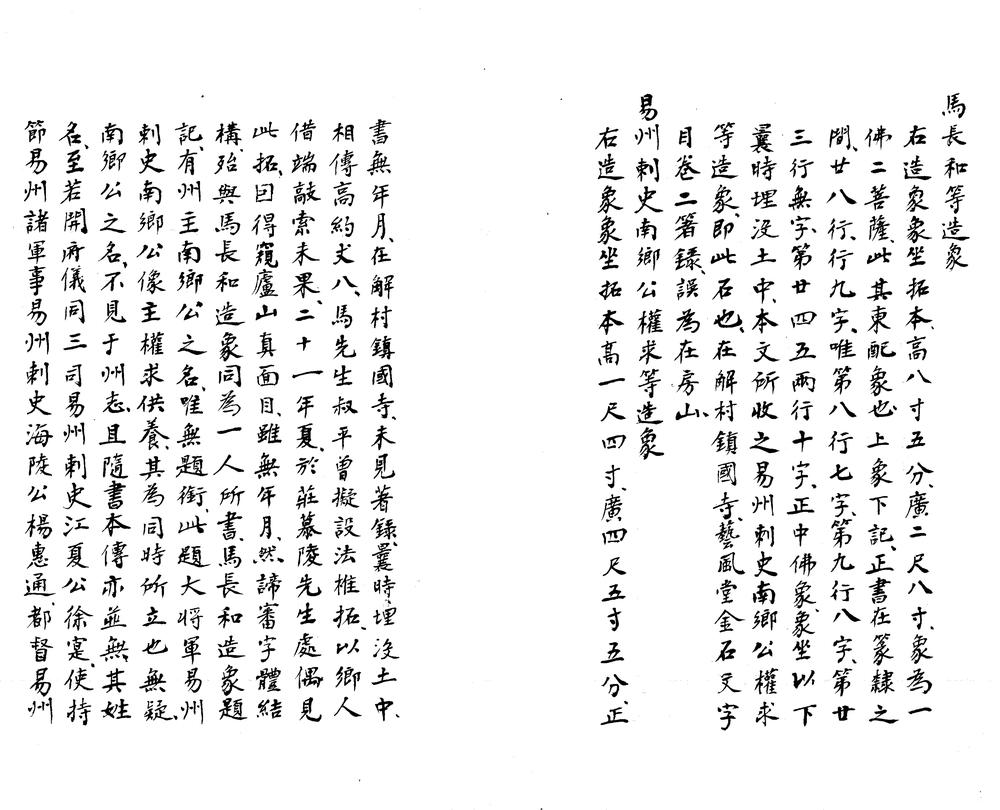 馬長和等造象
右造象象坐拓本、高八寸五分、廣二尺八寸、象為一
佛二菩薩、此其東配象也、上象下記、正書在篆隸之
間、廿八行、行九字、唯第八行七字、第九行八字、第廿
三行無字、第廿四五兩行十字、正中佛象、象坐以下
曩時埋沒土中、本文所收之易州刺史南鄉公權求
等造象、即此石也、在解村鎮國寺、藝風堂金石文字
目卷二箸錄、誤為在房山、
易州刺史南鄉公權求等造象
右造象象坐拓本高一尺四寸、廣四尺五寸五分、正
書無年月、在解村鎮國寺、未見著錄、曩時埋沒土中、
相傳高約丈八、馬先生叔平曾擬設法椎拓、以鄉人
借端敲索未果、二十一年夏、於莊慕陵先生處偶見
此拓、因得窺廬山真面目、雖無年月、然諦審字體結
構、殆與馬長和造象同為一人所書、馬長和造象題
記、有州主南鄉公之名、唯無題銜、此題大將軍易州
刺史南鄉公像主權求供養、其為同時所立也無疑、
南鄉公之名、不見于州志、且隨書本傳亦並無其姓
名、至若開府儀同三司易州刺史江夏公徐寔、使持
節易州諸軍事易州刺史海陵公楊惠通、都督易州